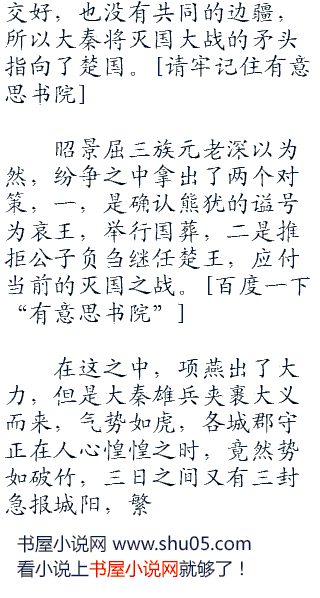 交好，也没有共同的边疆，
所以大秦将灭国大战的矛头
指向了楚国。[请牢记住有意
思书院]
昭景屈三族元老深以为
然，纷争之中拿出了两个对
策，一，是确认熊犹的谥号
为哀王，举行国葬，二是推
拒公子负刍继任楚王，应付
当前的灭国之战。[百度一下
“有意思书院”]
在这之中，项燕出了大
力，但是大秦雄兵夹裹大义
而来，气势如虎，各城郡守
正在人心惶惶之时，竟然势
如破竹，三日之间又有三封
急报城阳，繁
书屋小说网 www.shu05.com
看小说上书屋小说网就够了！